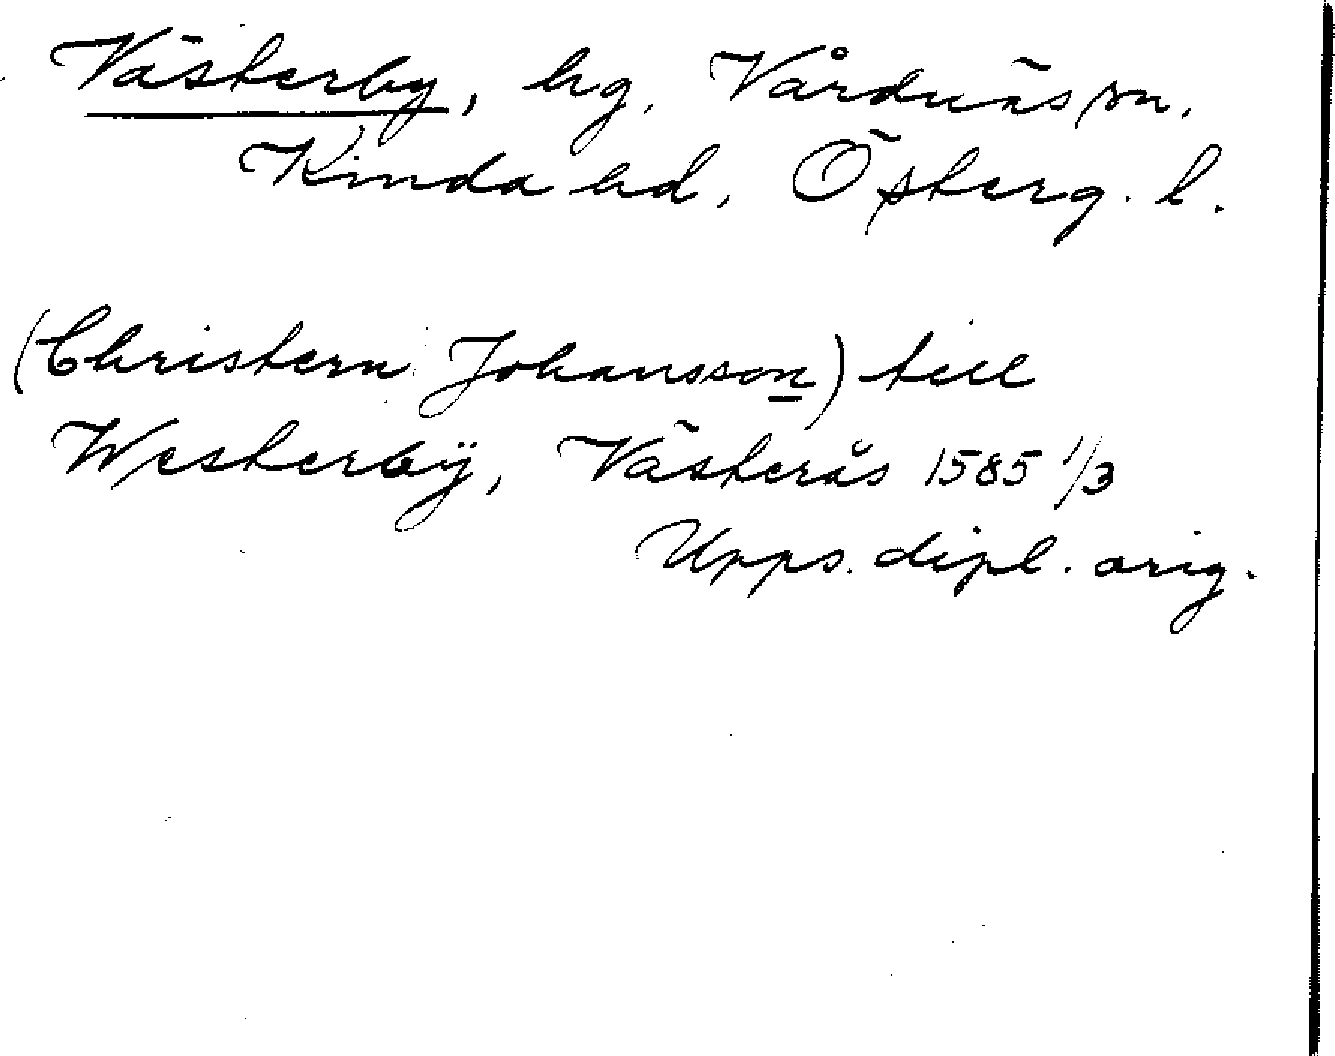 Västerby, hg, Vårdnäs sn.
Kinda hd, Österg. l.
(Christern Johansson) till
Westerbÿ, Västerås 1585 1/3
Upps. dipl. orig.